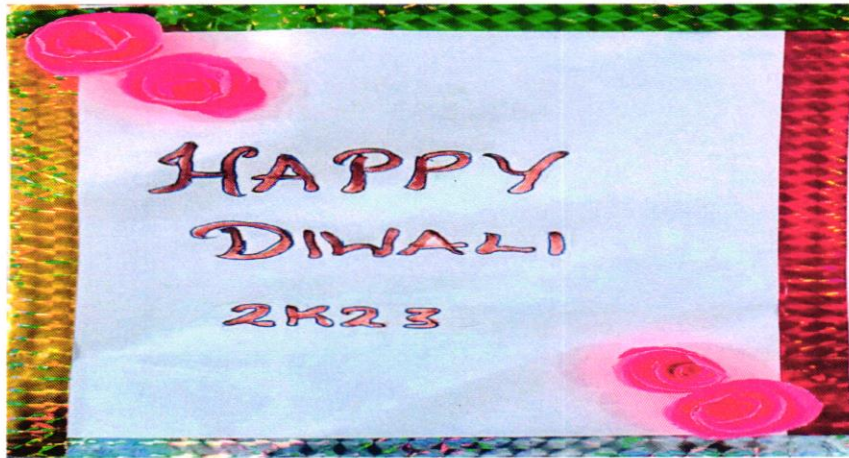 HAPPY
DIWALI
2K23